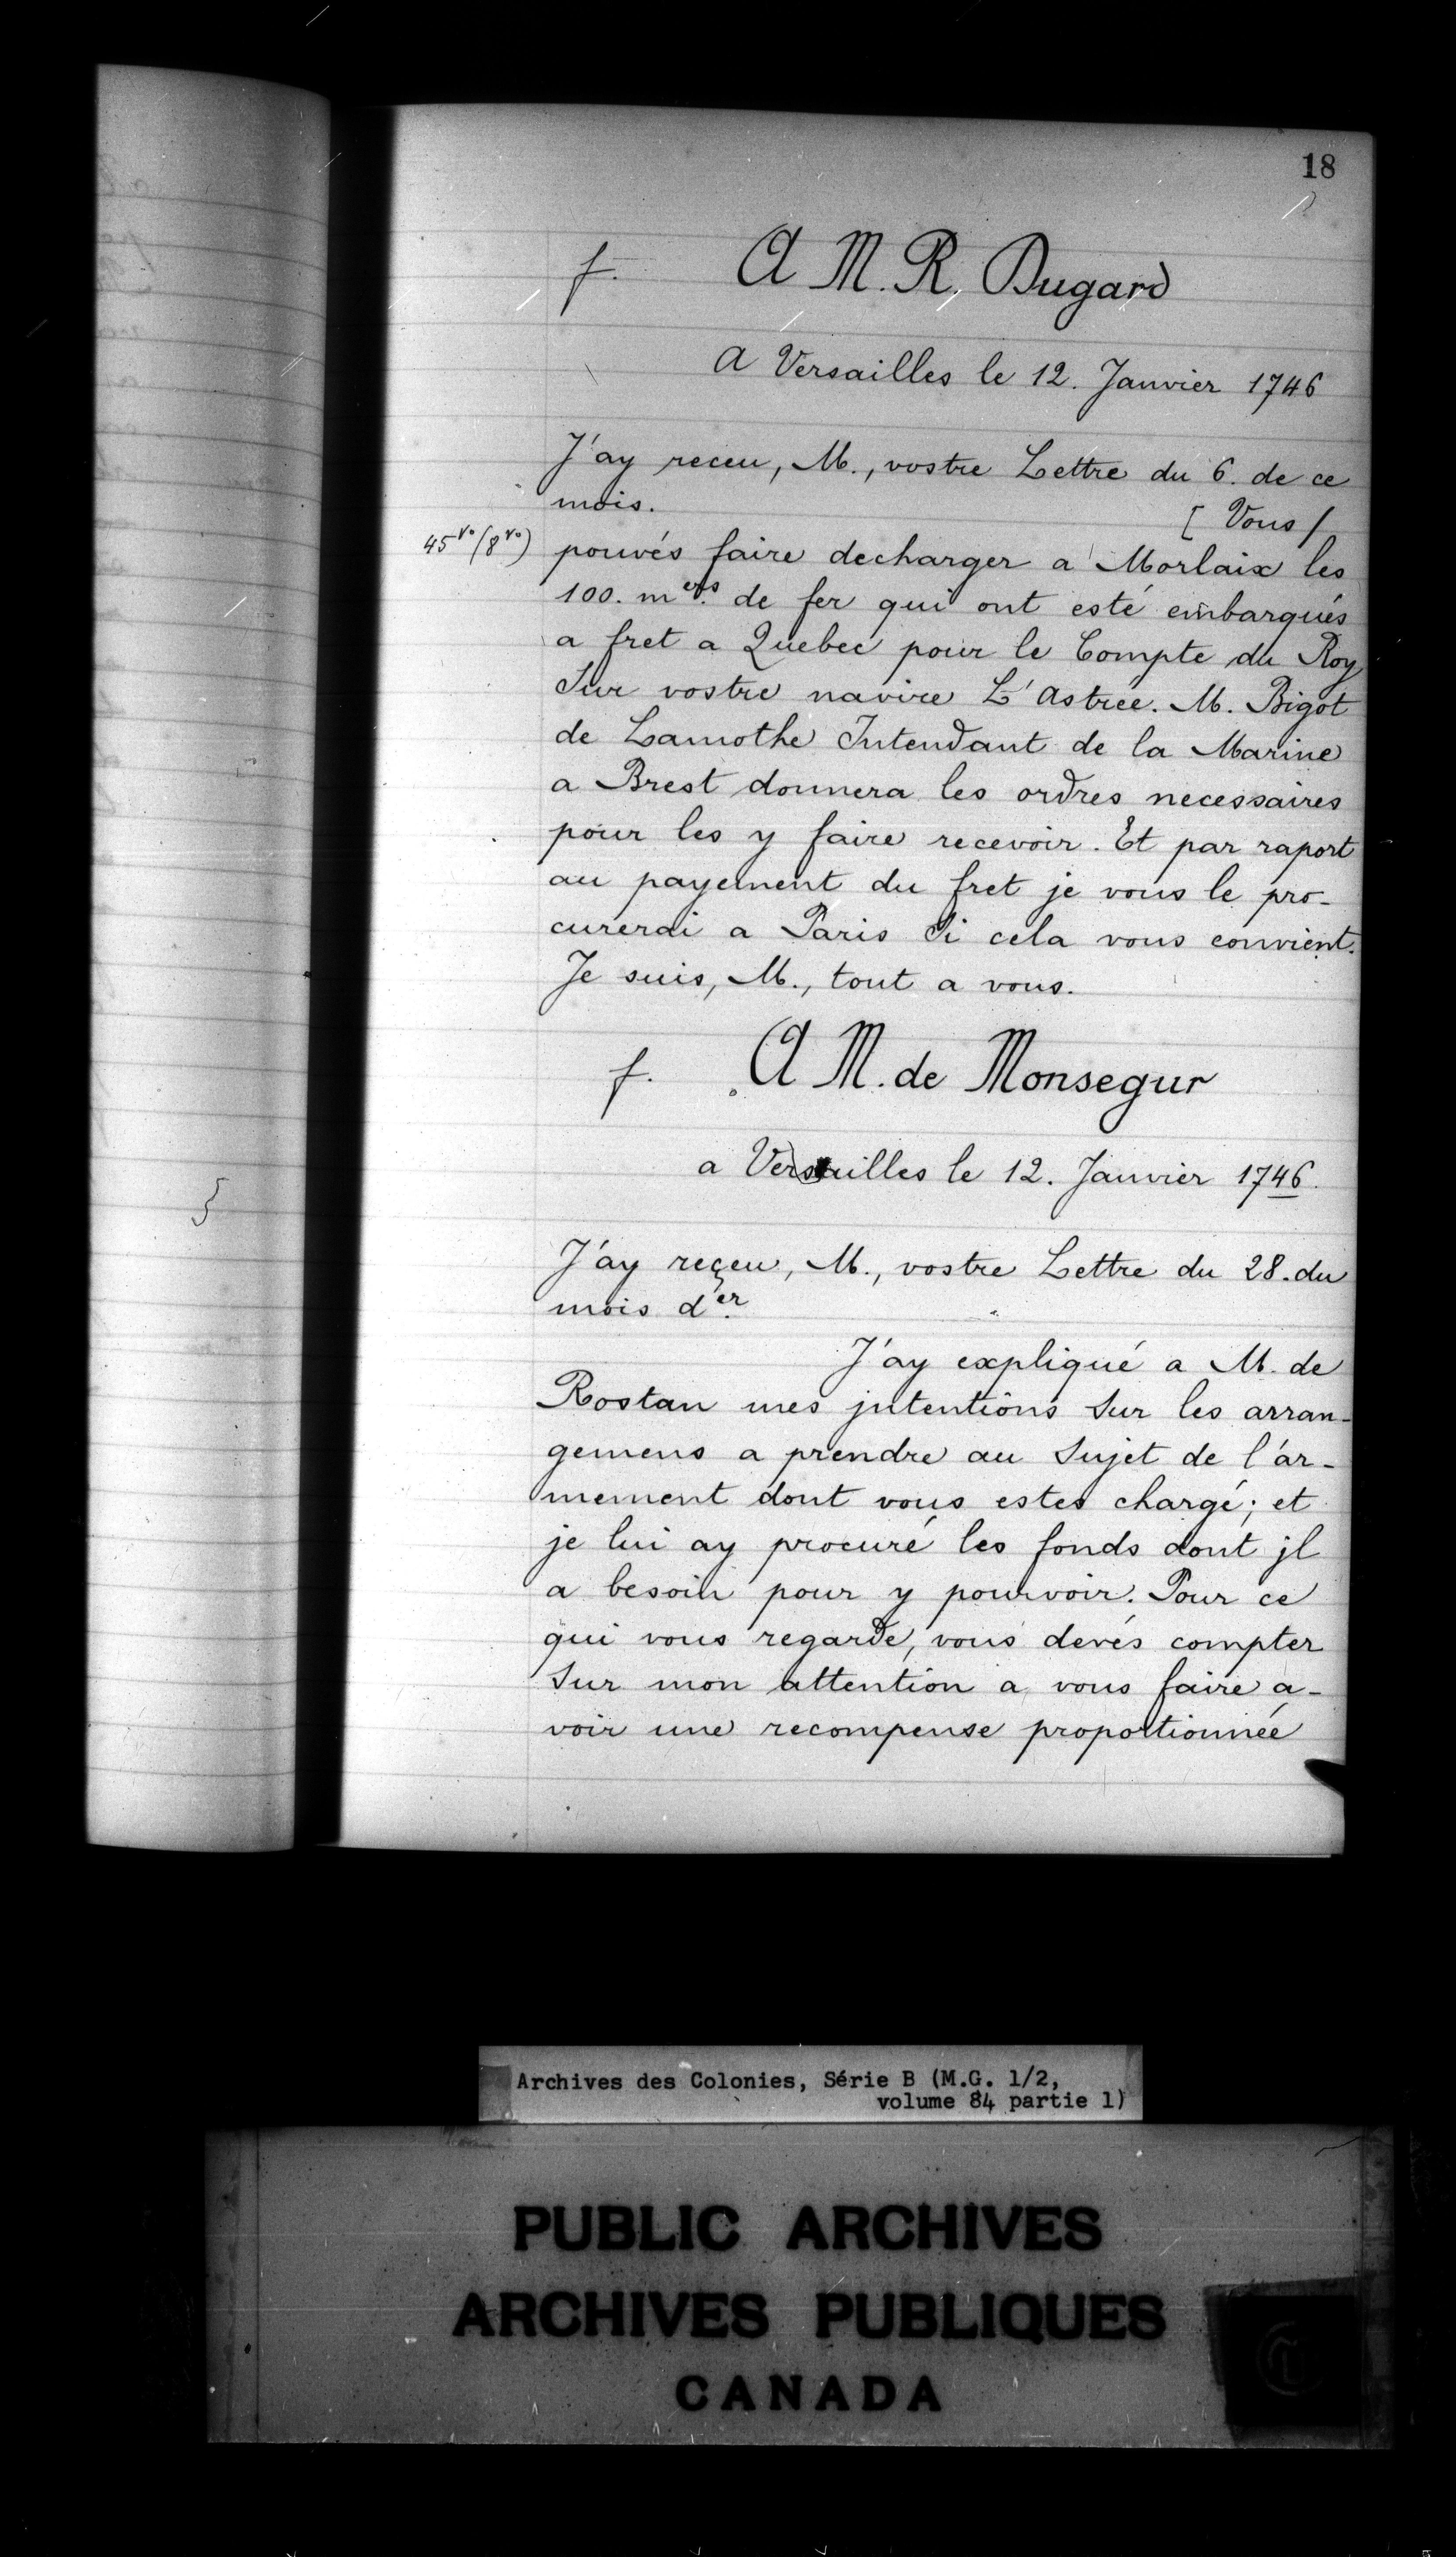 18
f. A M. R. Dugard
A Versailles le 12. Janvier 1746
J'ay receu, M., vostre Lettre du 6. de ce
mois.
[ Vous /
45 vo (8 vo) pouvés faire decharger a Morlaix les
100. m ers. de fer qui ont esté embarqués
a fret a Quebec pour le Compte du Roy
Sur vostre navire L'Astrée. M. Bigot
de Lamothe Intendant de la Marine
a Brest donnera les ordres necessaires
pour les y faire recevoir. Et par raport
au payement du fret je vous le pro-
curerai a Paris Si cela vous convient.
Je suis, M., tout a vous.
f. A M. de Monsegur
a Versailles le 12. Janvier 1746.
J'ay reçeu, M., vostre Lettre du 28. du
mois d er.
J'ay expliqué a M. de
Rostan mes jntentions Sur les arran-
gemens a prendre au Sujet de l'ar-
mement dont vous estes chargé; et
je lui ay procuré les fonds dont jl
a besoin pour y pourvoir. Pour ce
qui vous regarde, vous devés compter
Sur mon attention a vous faire a-
voir une recompense proportionnée
Archives des Colonies, Série B (M.G. 1/2,
volume 84 partie 1)
PUBLIC ARCHIVES
ARCHIVES PUBLIQUES
CANADA